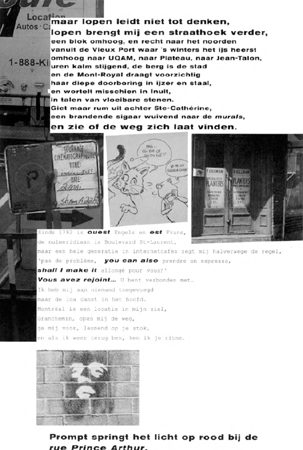 Location
Autos·C
1-888-KI
maar lopen leidt niet tot denken,
lopen brengt mij een straathoek verder,
een blok omhoog, en recht naar het noorden
vanuit de Vieux Port waar 's winters het ijs heerst
omhoog naar UQAM, naar Plateau, naar Jean-Talon,
uren kalm stijgend, de berg is de stad
en de Mont-Royal draagt voorzichtig
haar diepe doorboring in ijzer en staal,
en wortelt misschien in Inuit,
in talen van vloeibare stenen.
Giet maar rum uit achter Ste-Cathérine,
een brandende sigaar wuivend naar de murals,
en zie of de weg zich laat vinden.
Sinds 1792 is ouest Engels en est Frans,
de nulmeridiaan is Boulevard St-Laurent,
maar een hele generatie in internetcafés zegt mij halverwege de regel,
'pas de problème, you can also prendre un espresso,
shall I make it allongé pour vous?'
Vous avez rejoint... U bent verbonden met.
Ik heb mij aan niemand toegevoegd
maar de
in het hoofd.
Montréal is een locatie in mijn ziel,
open mit de weg,
ga mij voor, leunend op je stok,
en als ik weer terug ben, ben ik je
Prompt springt het licht op rood bij de
rue Prince Arthur.